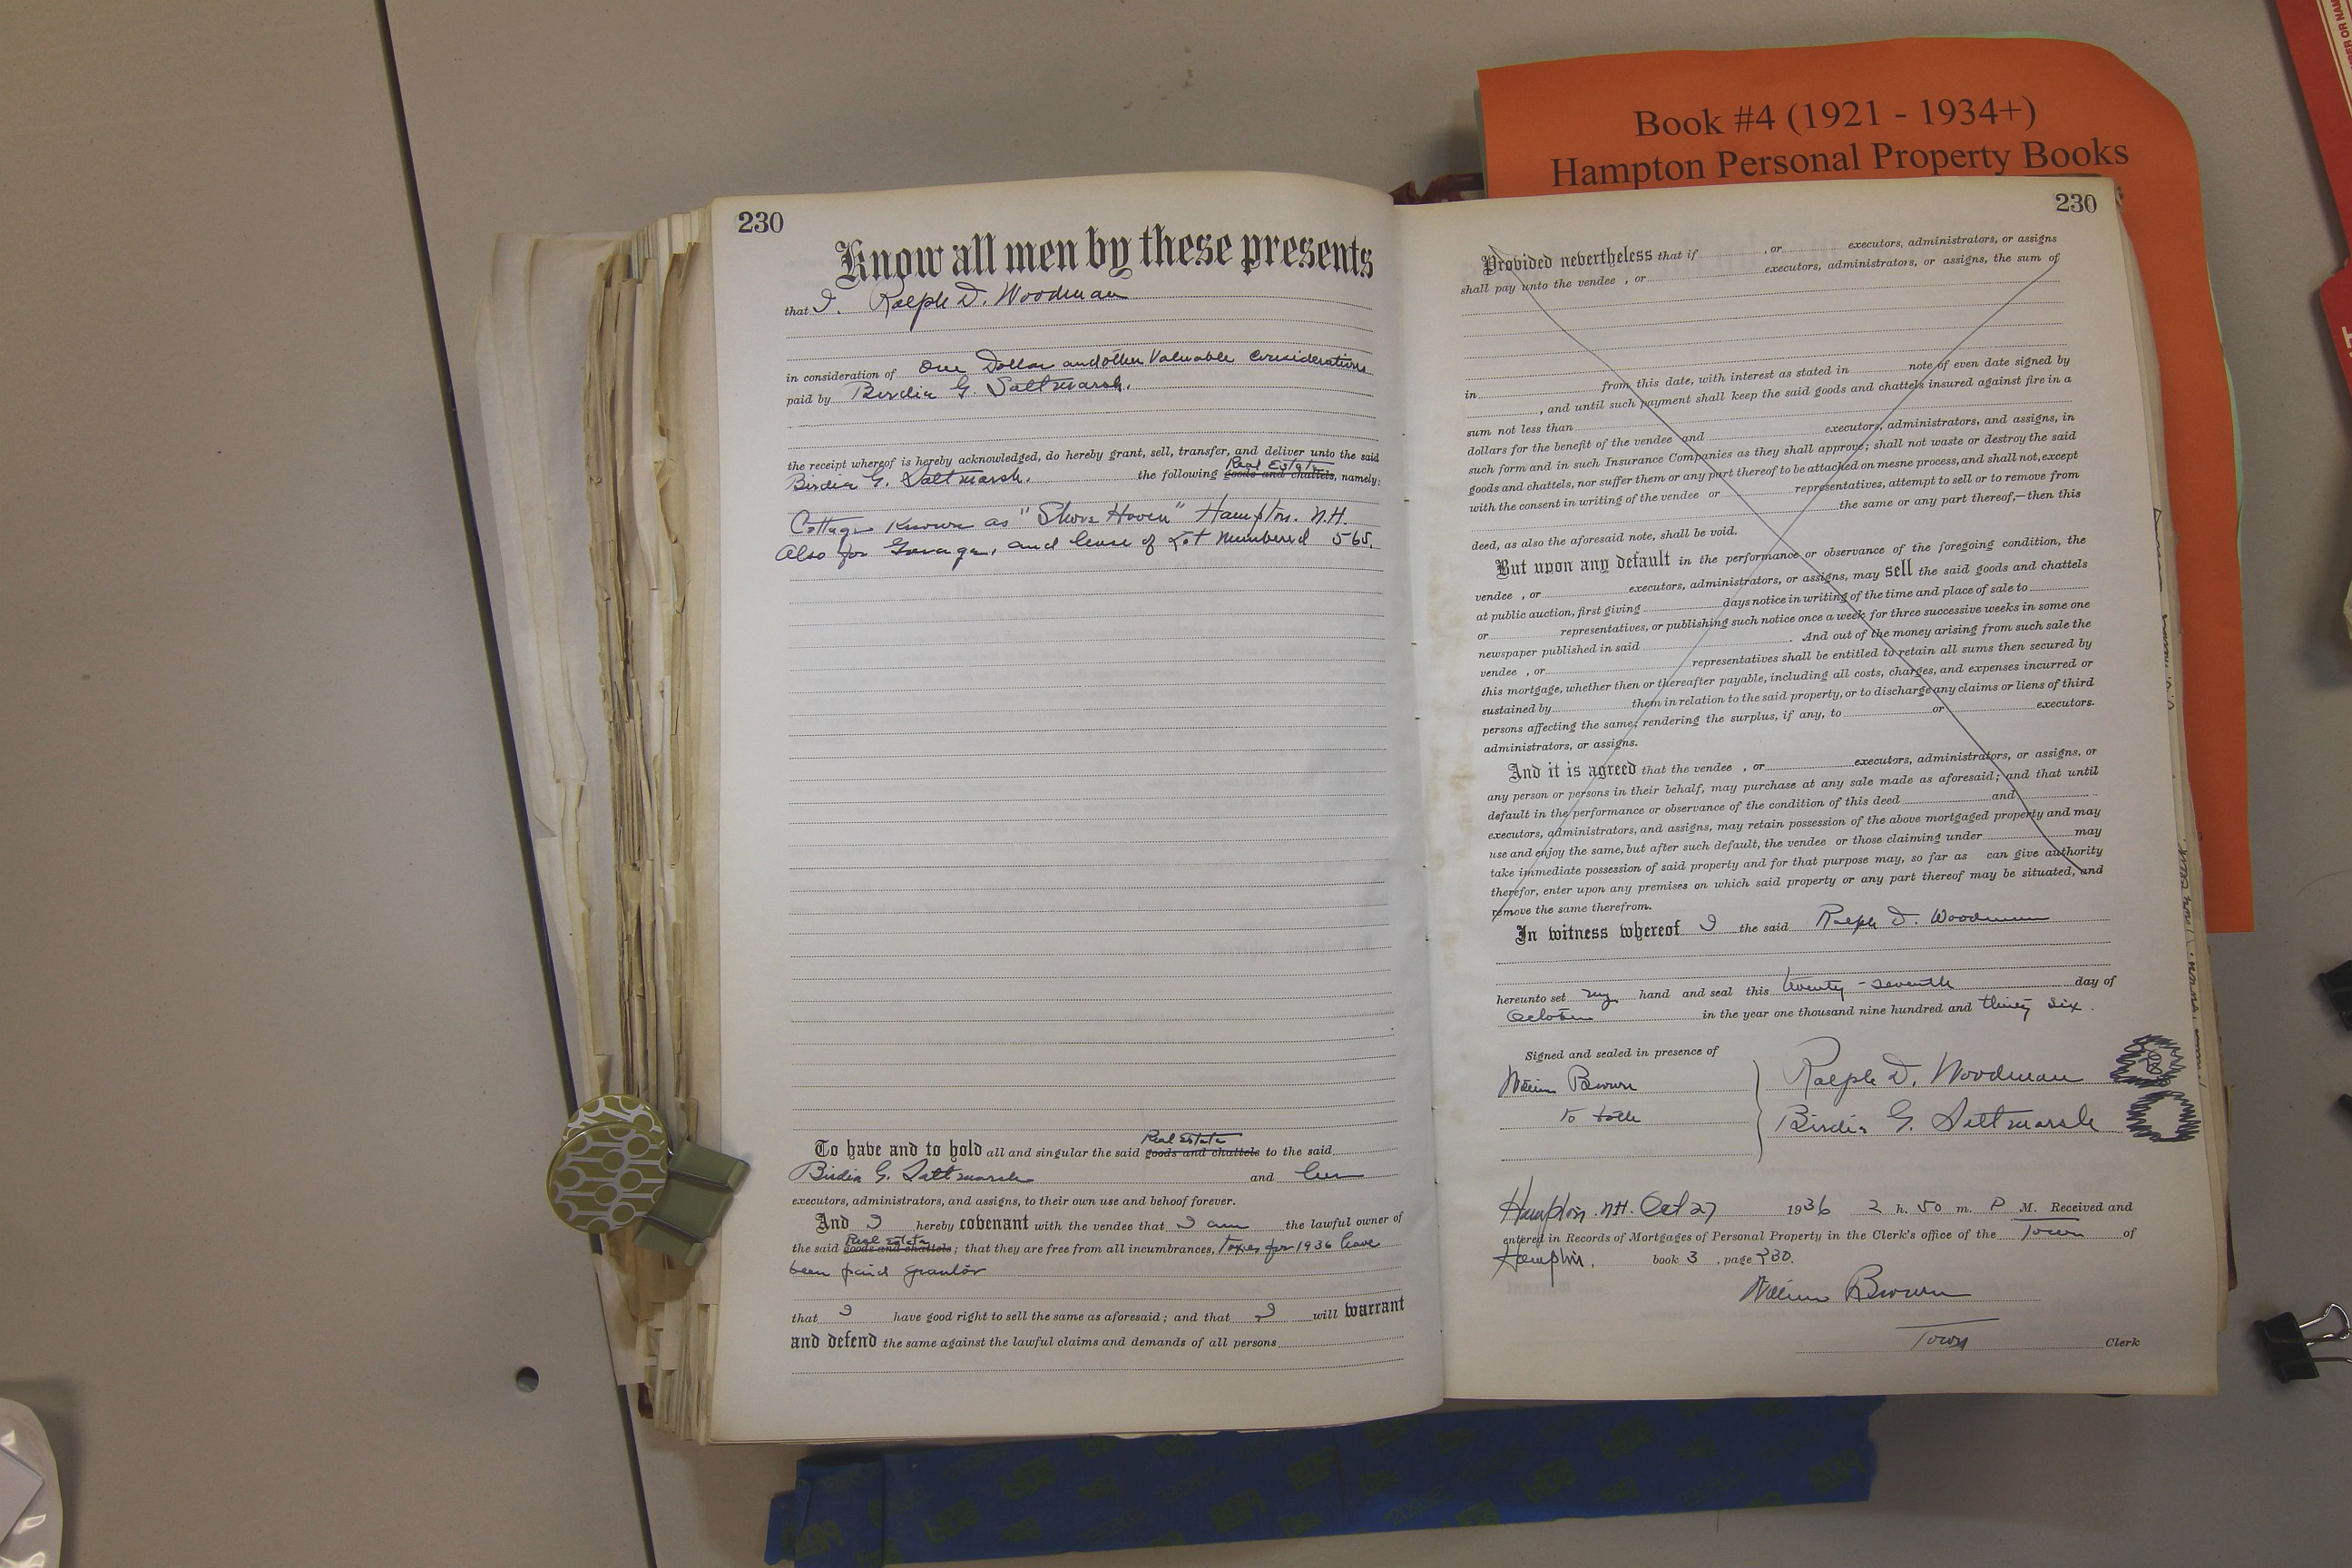 Book #4 (1921 - 1934+)
Hampton Personal Property Books
230
Know all men by these presents
that I. Ralph D. Woodman
in consideration of One Dollar and other Valuable Considerations
paid by Birdia G. Saltmarsh.
the receipt whereof is hereby acknowledged, do hereby grant, sell, transfer, and deliver unto the said
Real Estate
Birdia G. Saltmarsh. the following goods and chattels, namely:
Cottage Known as "Shore Haven" Hampton. N.H.
Also for Garage, and lease of Lot Numbered 565.
Real Estate
To have and to hold all and singular the said goods and chattels to the said
Birdia G. Saltmarsh and her
executors, administrators, and assigns, to their own use and behoof forever.
And I hereby covenant with the vendee that I am the lawful owner of
Real Estate
the said goods and chattels; that they are free from all incumbrances, Taxes for 1936 have
been paid grantor
that I have good right to sell the same as aforesaid; and that I will warrant
and defend the same against the lawful claims and demands of all persons
230
Provided nevertheless that if , or executors, administrators, or assigns
shall pay unto the vendee , or executors, administrators, or assigns, the sum of
in from this date, with interest as stated in note of even date signed by
, and until such payment shall keep the said goods and chattels insured against fire in a
sum not less than
dollars for the benefit of the vendee and executors, administrators, and assigns, in
such form and in such Insurance Companies as they shall approve; shall not waste or destroy the said
goods and chattels, nor suffer them or any part thereof to be attached on mesne process, and shall not, except
with the consent in writing of the vendee or representatives, attempt to sell or to remove from
the same or any part thereof,—then this
deed, as also the aforesaid note, shall be void.
But upon any default in the performance or observance of the foregoing condition, the
vendee , or executors, administrators, or assigns, may sell the said goods and chattels
at public auction, first giving days notice in writing of the time and place of sale to
or representatives, or publishing such notice once a week for three successive weeks in some one
newspaper published in said . And out of the money arising from such sale the
vendee , or representatives shall be entitled to retain all sums then secured by
this mortgage, whether then or thereafter payable, including all costs, charges, and expenses incurred or
sustained by them in relation to the said property, or to discharge any claims or liens of third
persons affecting the same; rendering the surplus, if any, to or executors.
administrators, or assigns.
And it is agreed that the vendee , or executors, administrators, or assigns, or
any person or persons in their behalf, may purchase at any sale made as aforesaid; and that until
default in the performance or observance of the condition of this deed and
executors, administrators, and assigns, may retain possession of the above mortgaged property and may
use and enjoy the same, but after such default, the vendee or those claiming under may
take immediate possession of said property and for that purpose may, so far as can give authority
therefor, enter upon any premises on which said property or any part thereof may be situated, and
remove the same therefrom.
In witness whereof I the said Ralph D. Woodman
hereunto set my hand and seal this twenty-seventh day of
October in the year one thousand nine hundred and thirty six.
Signed and sealed in presence of
William Brown Ralph D. Woodman
to both Birdia G. Saltmarsh
Hampton. N.H. Oct 27 1936 2 h. 50 m. P M. Received and
entered in Records of Mortgages of Personal Property in the Clerk's office of the Town of
Hampton. book 3 , page 230.
William Brown
Town Clerk